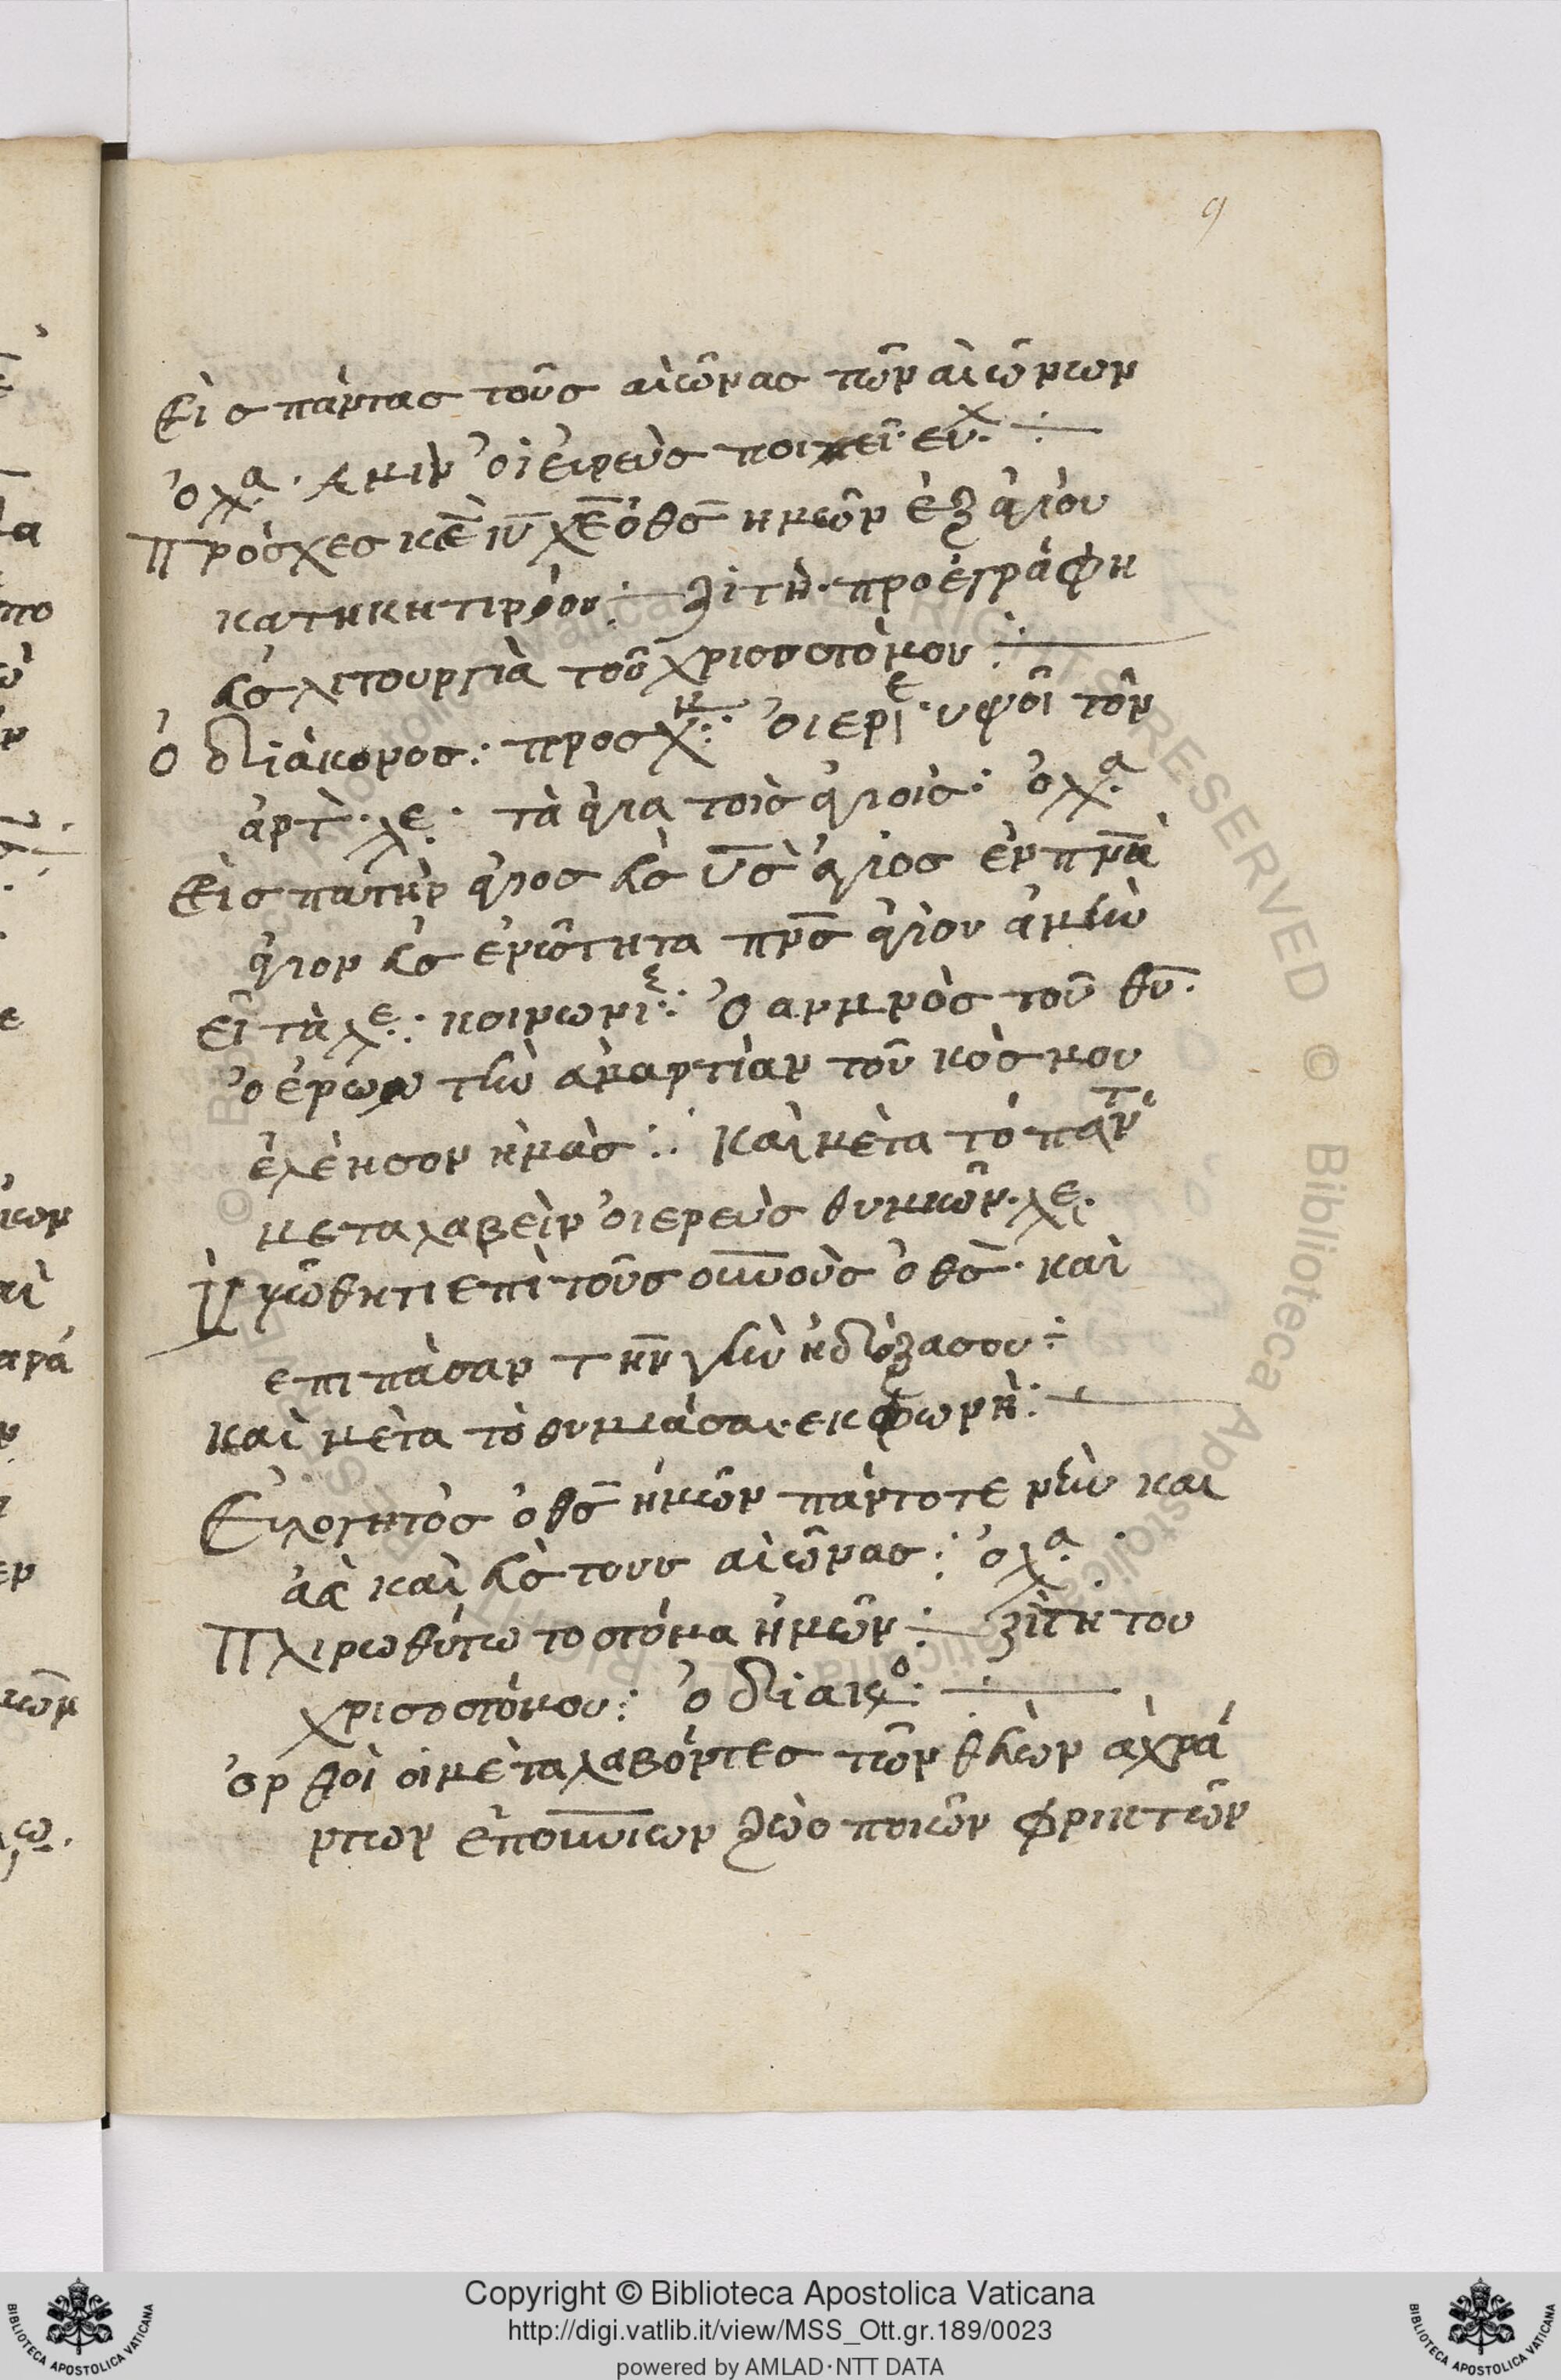 9
Εἰς πάντας τοῦς αἰῶνας τῶν αἰώνων
ὁ λα. Ἀμιν ὁ ἰέιρεὺς ποιεῖ εὐχ
Πρόσχες κε ιυ χε ὁ θς ημῶν ἐξ ἁγίου
κατηκητιρίου ζίτη προεγράφη
εἰς λιτουργιὰ τοῦ χρισοστόμου
ὁ διάκονος: προσχ ὁ ιερε υψοῖ τὸν
ἀρτ. λε. τὰ ἅγια τοὶς ἁγίοις: ὁ λα
Εἲς πατὴρ ἅγιος εἷς υς ἅγιος ἐν πνα
ἅγιον εἰς ἑνῶτητα πνς ἁγίου ἀμὴν
εἶτα λε: κοινωνι: Ὁ αμνὸς τοῦ θυ.
ὁ ἐρων τὴν ἁμαρτίαν τοῦ κόσμου
ἐλέησον ἡμὰς: Καὶ μετα τὸ παντ
μεταλαβεὶν ὁ ιερεὺς θυμιῶν. λε.
Ὑψῶθητι επὶ τοῦς ουνοὺς ὁ θς. καὶ
επι πὰσαν την γὴν ἡ δόξα σου
καὶ μετα τὸ θυμιάσαι. εκφωνη:
Εὐλογητὸς ὁ θς ἡμῶν πάντοτε νὴν και
ἀὰ καὶ εἰς τους αἰῶνας: ὁ λα
Πλιρωθύτω το στόμα ἡμῶν: ζίτη του
χρισοστόμου: ὁ διακο:
ὀρθοὶ οἱ μεταλαβόντες τῶν θείων ἀχρά
ντων ἐπουνίων ζωοποιῶν φρικτῶν
Copyright © Biblioteca Apostolica Vaticana
http://digi.vatlib.it/view/MSS_Ott.gr.189/0023
powered by AMLAD·NTT DATA